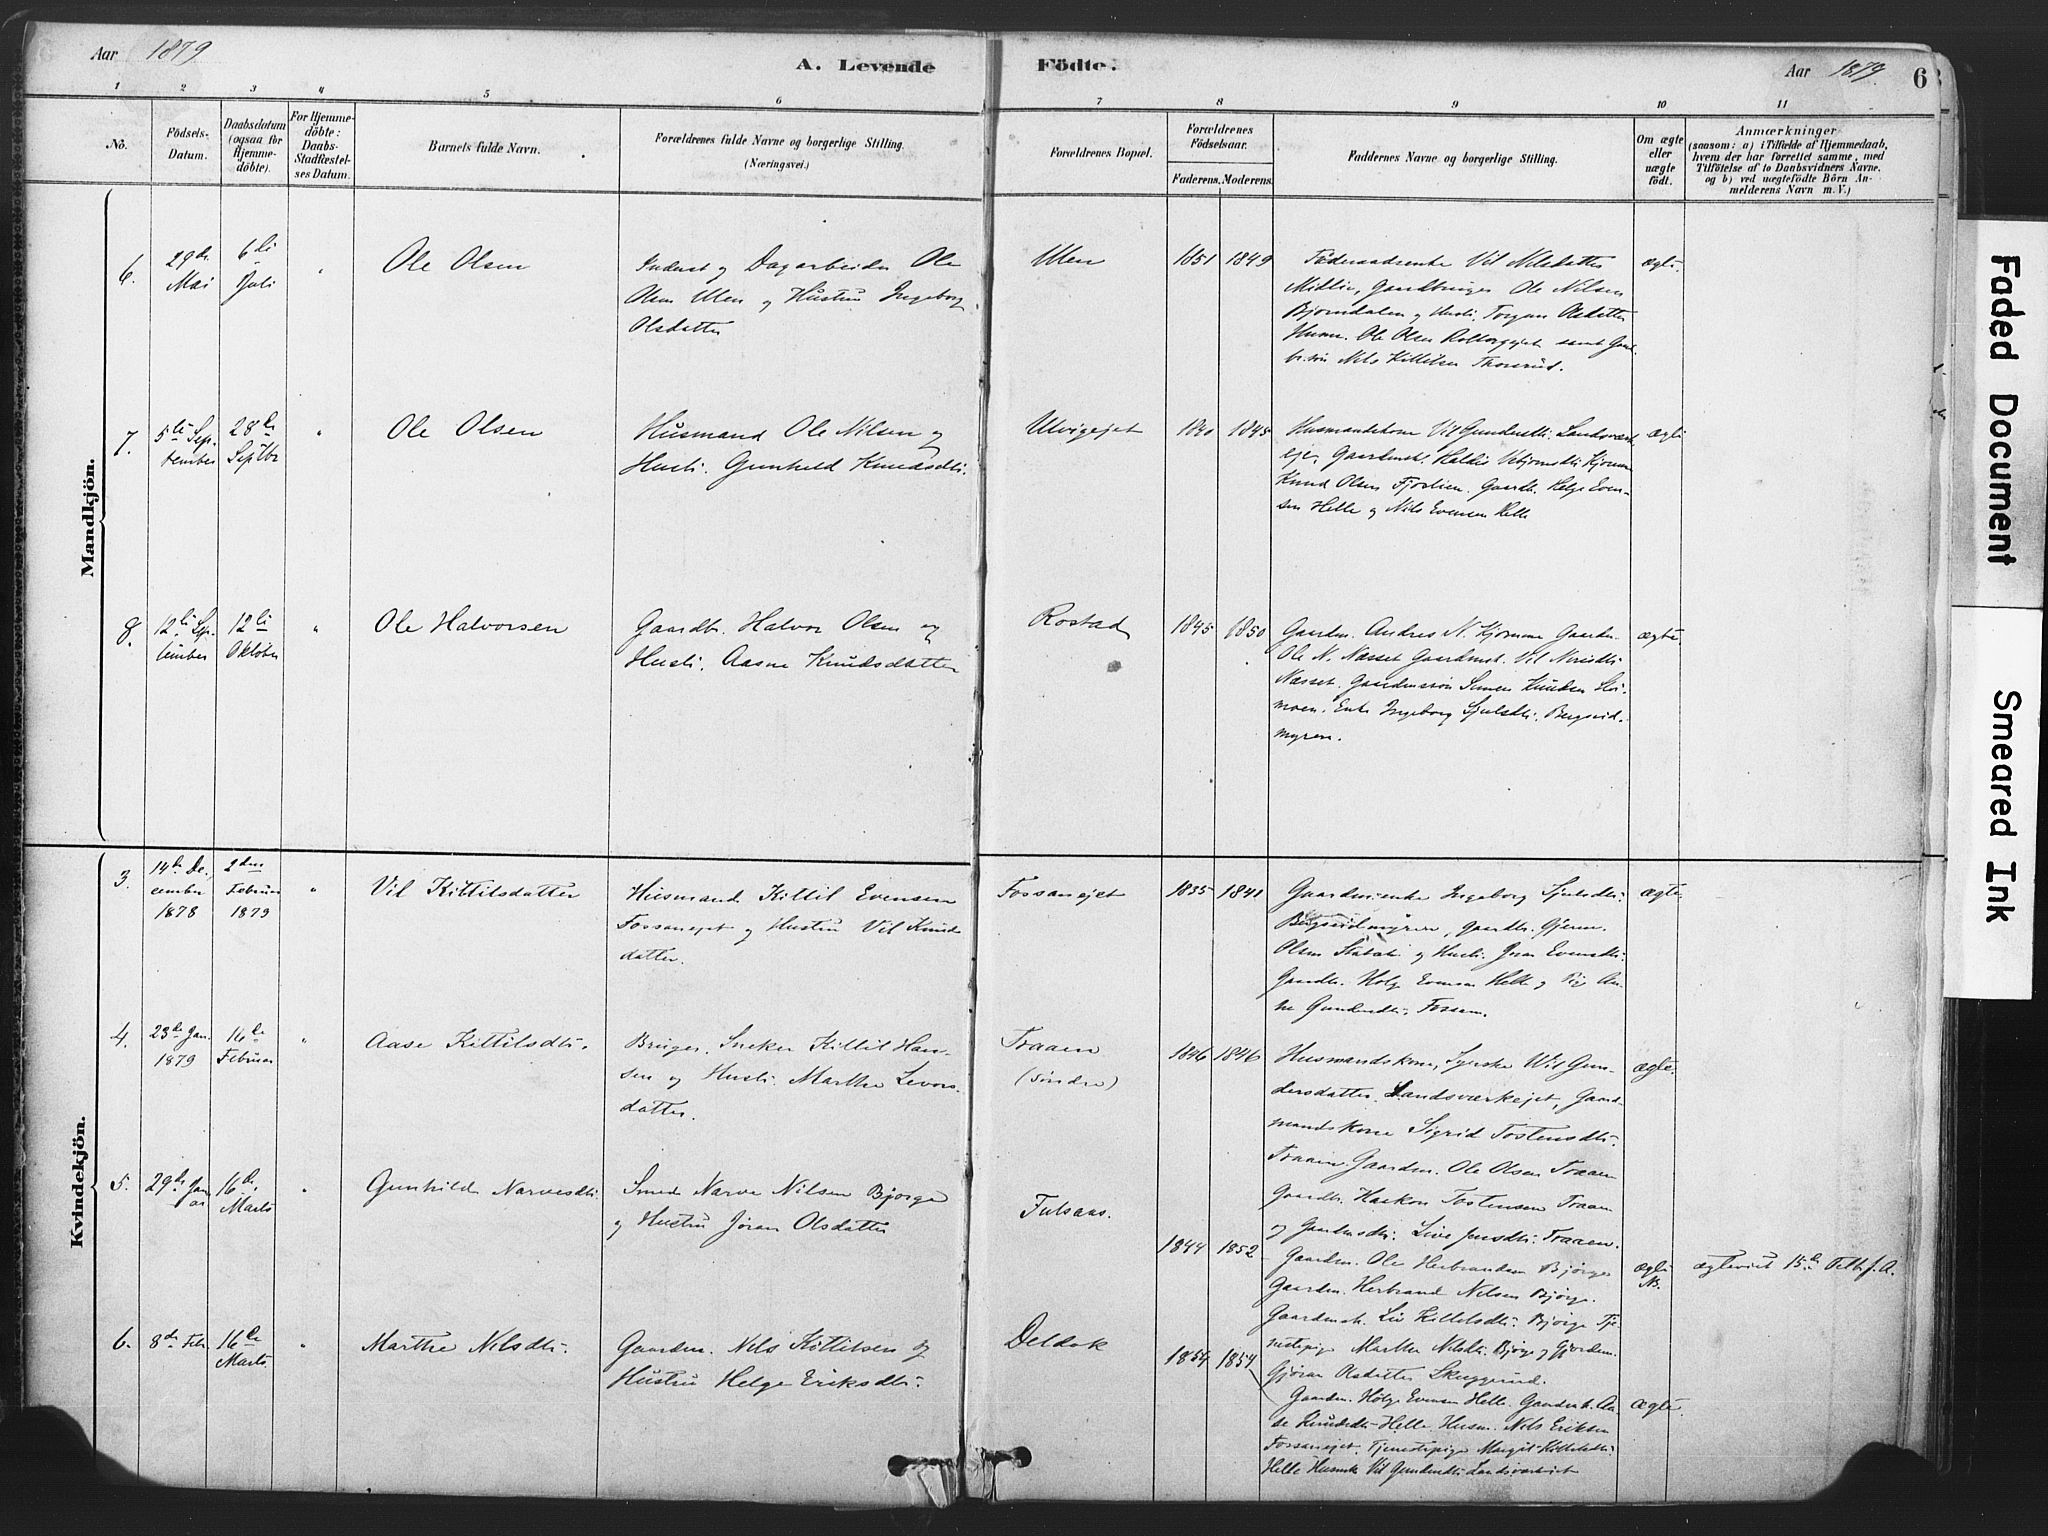 Aar 1879
A. Levende Födte.
Aar 1879. 6
1 2 3 4 5 6 7 8 9 10 11
No.
Födsels-
Datum.
Daabsdatum
(ogsaa for
Hjemme-
döbte).
For Hjemme-
döbte:
Daabs-
Stadfæstel-
ses Datum.
Barnets fulde Navn.
Forældrenes fulde Navne og borgerlige Stilling.
(Næringsvei.)
Forældrenes Bopæl.
Forældrenes
Födselsaar.
Faderens. Moderens.
Faddernes Navne og borgerlige Stilling.
Om ægte
eller
uægte
födt.
Anmærkninger
(saasom: a) i Tilfælde af Hjemmedaab,
hvem der har forrettet samme, med
Tilföielse af to Daabsvidners Navne,
og b) ved uægtefödte Börn An-
melderens Navn m. V.)
Mandkjön.
6.
29de
Mai
6te
Juli
"
Ole Olsen
Inderst og Dagarbeider Ole
Olsen Ulen og Hustru Ingeborg
Olsdatter
Ulen
1851 1849
Föderaadsenke Vil Nilsdatter
Midlien, Gaardbruger Ole Nilsen
Bjørndalen og Hustr. Torgun Olsdatter
Husm. Ole Olsen samt Gaard-
br.søn Nils Kittilsen Thorsrud.
ægte.
7.
5te Sep-
tember
28de
Septbr
"
Ole Olsen
Husmand Ole Nilsen og
Hustr. Gunhild Knudsdtr.
Ulvigejet
1840 1845
Husmandskone Vil Gundersdtr. Landsværk-
eje, Gaardmst. Haldis Vebjørnsdtr. Kjomme
Knud Olsen Fjøslien. Gaardb. Helge Even-
sen Helle og Nils Evensen Helle
ægte
8.
12te Sep-
tember
12te
Oktober
"
Ole Halvorsen
Gaardbr. Halvor Olsen og
Hustr. Aasne Knudsdatter
Rostad
1845 1850
Gaardm. Andres N. Kjomme Gaardm.
Ole N. Næsset Gaardmst. Vil Nirisdtr.
Næsset. Gaardmssön Simen Knudsen Stor-
moen. Enke Ingeborg Sjulsdtr. Bergsvid-
myren.
ægte.
Kvindekjön.
3.
14de De-
cember
1878
2den
Februar
1879
"
Vil Kittilsdatter
Husmand Kittil Evensen
Fossanejet og Hustru Vil Knuds
datter.
Fossanejet
1835 1841
Gaardmsenke Ingeborg Sjulsdtr.
Bergsvidmyren, Gaardbr. Gjeren
Olsen og Hustr. Jøran Evensdtr.
Gaardbr. Helge Evensen Helle og Pige An-
ne Gundersdtr. Fossan.
ægte.
4.
23de Jan.
1879
16de
Februar
"
Aase Kittilsdtr.
Bruger. Sneker Kittil Han-
sen og Hustr. Marthe Levors-
datter.
Traaen
(søndre)
1846 1846
Husmandskone, Synske Wil Gun-
dersdatter Landsværkejet, Gaard-
mandskone Sigrid Tostensdtr.
Traaen. Gaardm. Ole Olsen Traaen
Gaardbr. Haakon Tostensen Traaen
og Gaardmsdtr. Live Jensdtr. Traaen.
ægte.
5.
29de Jan
uar
16de
Marts
"
Gunhild Narvesdtr.
Smed Narve Nilsen Bjørge
og Hustru Jøran Olsdatter
Fulsaas.
1844 1852
Gaardm. Ole Herbrandsen Bjørge
Gaardm. Herbrand Nilsen Bjørge.
Gaardmst. Liv Kittilsdtr. Bjørge Tje-
nestepige Marthe Nilsdtr. Bjørge og Gjordem.
Gjøran Olsdatter Skuggerud.
ægte
NB.
ægteviet 15de Febr. f. A.
6.
8de Febr
16de
Marts
"
Marthe Nilsdtr.
Gaardm. Nils Kittilsen og
Hustru Helge Eriksdtr.
Deldok
1854 1854
Gaardm. Helge Evensen Helle. Gaardbst. Aa-
se Knudsdtr. Helle. Husm. Nils Eriksen
Fossanejet. Tjenestepige Margit Kittilsdtr.
Helle Husmk. Vil Gundersdtr. Landsværkejet
ægte.
Faded Document
Smeared Ink